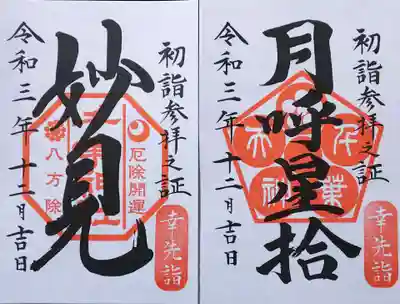 初詣参拝之証
厄除開運
妙見
八方除
令和三年十二月吉日
幸先詣
初詣参拝之証
月呼星拾
令和三年十二月吉日
幸先詣